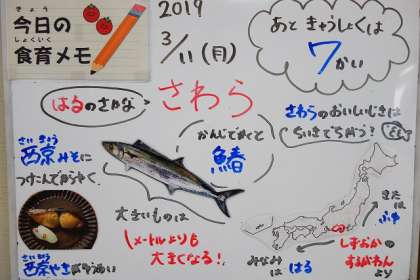 きょう
今日の
しょくいく
食育メモ
2019
3/11(月)
あと きゅうしょくは
7かい
はるのさかな
さわら
さわらのおいしいじきは
ちいきでちがう!
かんじでかくと
鰆
さいきょう
西京みそに
つけこんでからやく
大きいものは
1メートルよりも
大きくなる!
きたは
ふゆ
しずおかの
するがわん
より
みなみは
はる
さいきょう
西京やき